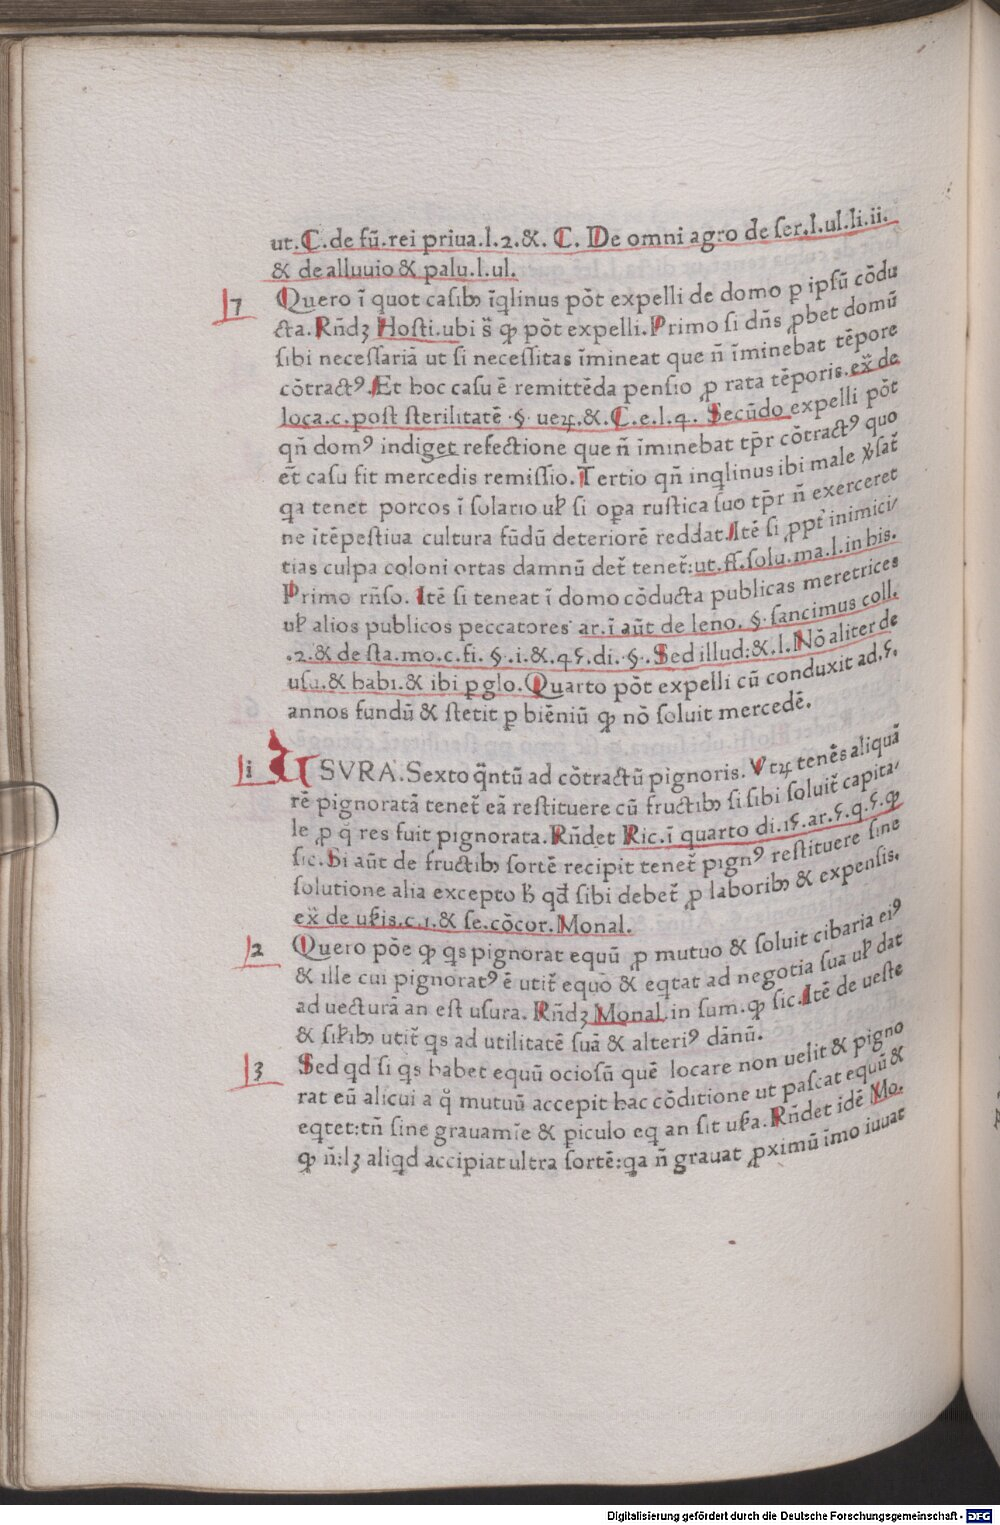 ut. C. de fū. rei priua. l. 2. &. C. De omni agro de ſer. l. ul. li. ii.
& de alluuio & palu. l. ul.
7 Quero ī quot caſibꝫ īqlinus pōt expelli de domo ꝑ ipſū cōdu
cta. Rn̄dꝫ Hoſti. ubi s̄ ꝙ pōt expelli. Primo ſi dn̄s ꝓbet domū
ſibi neceſſariā ut ſi neceſſitas īmineat que n̄ īminebat tēpore
cōtractꝰ. Et hoc caſu ē remittēda penſio ꝓ rata tēporis. ex̄ de
loca. c. poſt ſterilitatē . §. ueꝝ. &. C. e. l. 4. Secūdo expelli pōt
qn̄ domꝰ indiget refectione que n̄ īminebat tp̄r cōtractꝰ quo
et̄ caſu fit mercedis remiſſio. Tertio qn̄ inqlinus ibi male ꝟſat̄
qa tenet porcos ī ſolario uꝉ ſi oꝑa ruſtica ſuo tp̄r n̄ exerceret
ne ītēpeſtiua cultura fūdū deteriorē reddat. Itē ſi ꝓpt̄ inimici/
tias culpa coloni ortas damnū det̄ tenet̄: ut. ff. ſolu. ma. l. in his.
Primo rn̄ſo. Itē ſi teneat ī domo cōducta publicas meretrices
uꝉ alios publicos peccatores ar. ī aūt de leno. §. ſancimus coll.
.2. & de ſta. mo. c. fi. §. i. & . 45. di. §. Sed illud: &. l. Nō aliter de
uſu. & habi. & ibi ꝑ glo. Quarto pōt expelli cū conduxit ad. 5.
annos fundū & ſtetit ꝑ biēniū ꝙ nō ſoluit mercedē.
i USVRA. Sexto q̄ntū ad cōtractū pignoris. Vtꝝ tenēs aliquā
rē pignoratā tenet̄ eā reſtituere cū fructibꝫ ſi ſibi ſoluit̄ capita/
le ꝓ q̄ res fuit pignorata. Rn̄det Ric. ī quarto di. 15. ar. 5. q. 5. ꝙ
ſic. Si aūt de fructibꝫ ſortē recipit tenet̄ pignꝰ reſtituere ſine
ſolutione alia excepto h̄ qd̄ ſibi debet̄ ꝓ laboribꝫ & expenſis.
ex̄ de uꝉis. c. 1. & ſe. cōcor. Monal.
2 Quero pōe ꝙ qs pignorat equū ꝓ mutuo & ſoluit cibaria eiꝰ
& ille cui pignoratꝰ ē utit̄ equo & eqtat ad negotia ſua uꝉ dat
ad uecturā an eſt uſura. Rn̄dꝫ Monal. in ſum. ꝙ ſic. Itē de ueſte
& ſiꝉibꝫ utit̄ qs ad utilitatē ſuā & alteriꝰ dānū.
3 Sed qd ſi qs habet equū ocioſū quē locare non uelit & pigno
rat eū alicui a q̄ mutuū accepit hac cōditione ut paſcat equū &
eqtet: tn̄ ſine grauamīe & piculo eq an ſit uꝉa. Rn̄det idē Mo.
ꝙ n̄: lꝫ aliqd accipiat ultra ſortē: qa n̄ grauat ꝓximū īmo iuuat
Digitalisierung gefördert durch die Deutsche Forschungsgemeinschaft - DFG